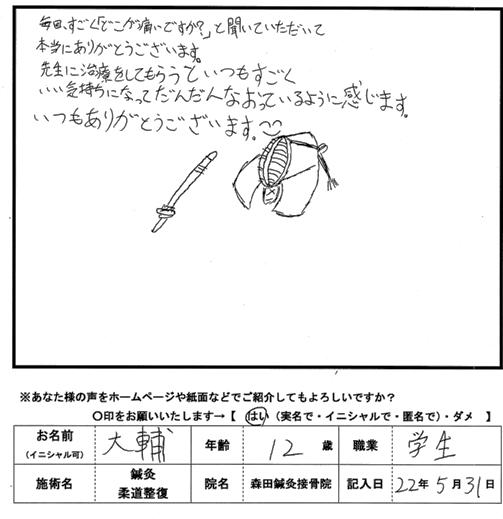 毎回、すごく「どこが痛いですか?」と聞いていただいて
本当にありがとうございます。
先生に治療をしてもらうといつもすごく
いい気持ちになってだんだんなおっているように感じます。
いつもありがとうございます。
※あなた様の声をホームページや紙面などでご紹介してもよろしいですか?
〇印をお願いいたします→【 はい(実名で・イニシャルで・匿名で)・ダメ 】
お名前 (イニシャル可) 大輔 年齢 12歳 職業 学生
施術名 鍼灸 柔道整復 院名 森田鍼灸接骨院 記入日 22年5月31日